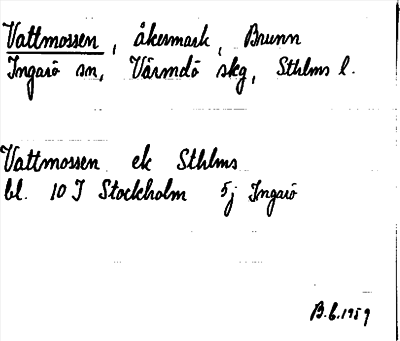 Vattmossen, åkermark, Brunn
Ingarö sn, Värmdö skg, Sthlms l.
Vattmossen ek Sthlms
bl. 10 I Stockholm 5j Ingarö
B.6.1959